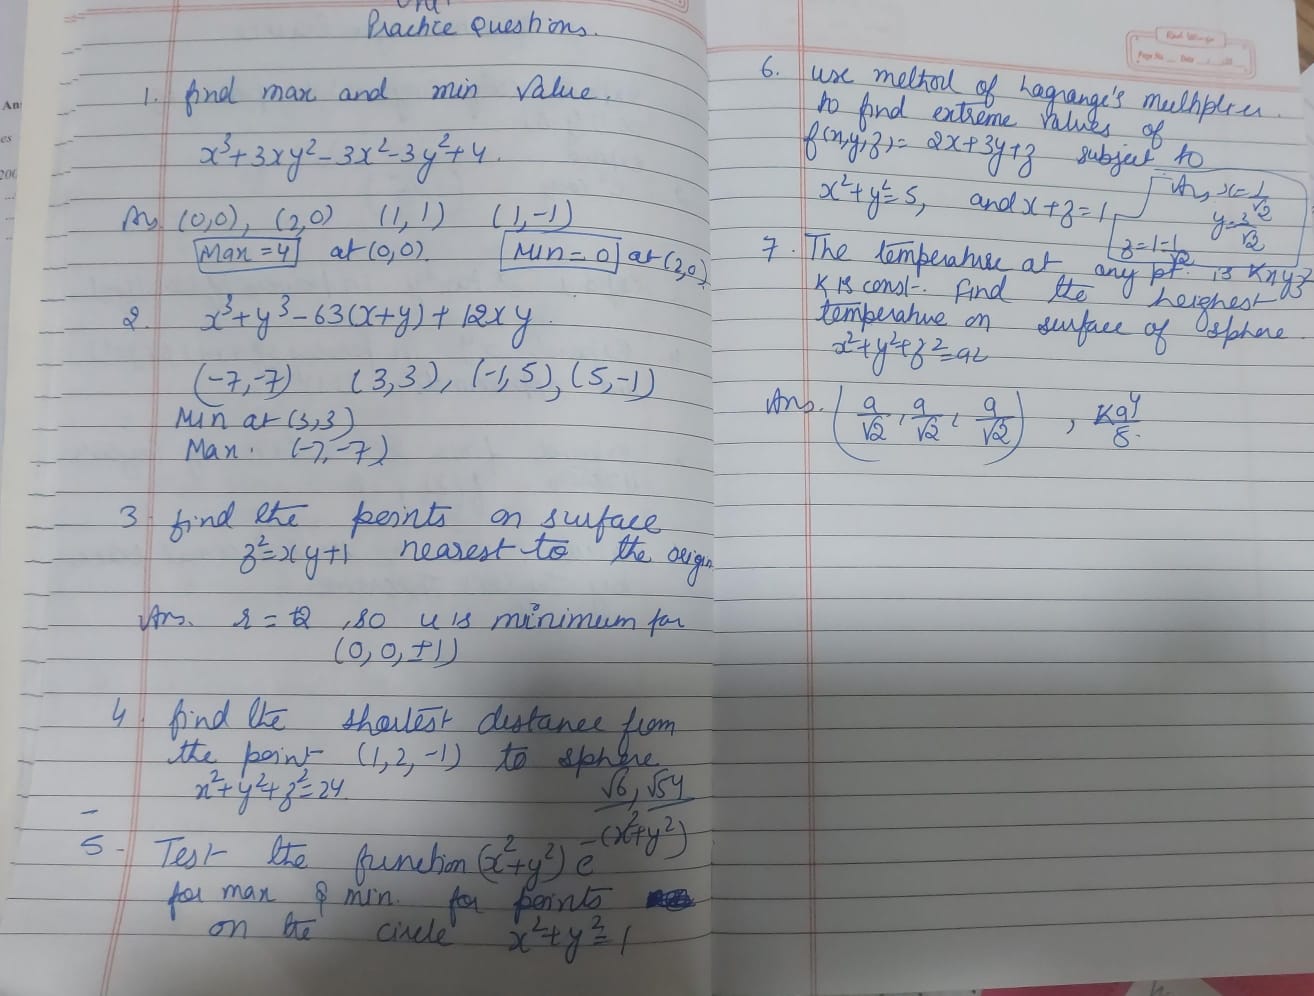 Practice Questions.
1. find max and min value.
x³+3xy²-3x²-3y²+4.
Ans (0,0), (2,0) (1,1) (1,-1)
Max = 4 at (0,0). Min = 0 at (2,0)
2. x³+y³-63(x+y)+12xy.
(-7,-7) (3,3), (-1,5), (5,-1)
Min at (3,3)
Max. (-7,-7)
3. find the points on surface
z²=xy+1 nearest to the origin
Ans. r = 2, so u is minimum for
(0,0,±1)
4. find the shortest distance from
the point (1,2,-1) to sphere
x²+y²+z²=24. √6, √54
5- Test the function (x²+y²) e^-(x²+y²)
for max & min. for points
on the circle x²+y²=1
An
es
200
Page No. Date
6. use method of Lagrange's multiplier.
to find extreme values of
f(x,y,z)= 2x+3y+z subject to
x²+y²=5, and x+z=1 Ans x=1/√2
y=3/√2
z=1-1/√2
7. The temperature at any pt. is Kxyz²
K is const-. Find the heighest
temperature on surface of sphere.
x²+y²+z²=a2
Ans. (a/√2, a/√2, a/√2), Ka⁴/8.